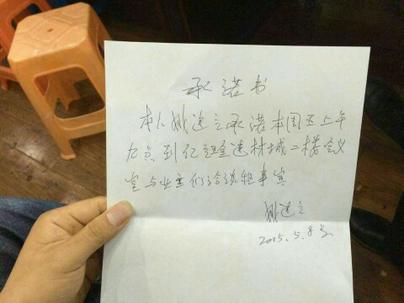 承诺书
本人姚建立承诺本周五上午
九点到亿超建材城二楼会议
室与业主们洽谈租事宜
姚建立
2015.5.